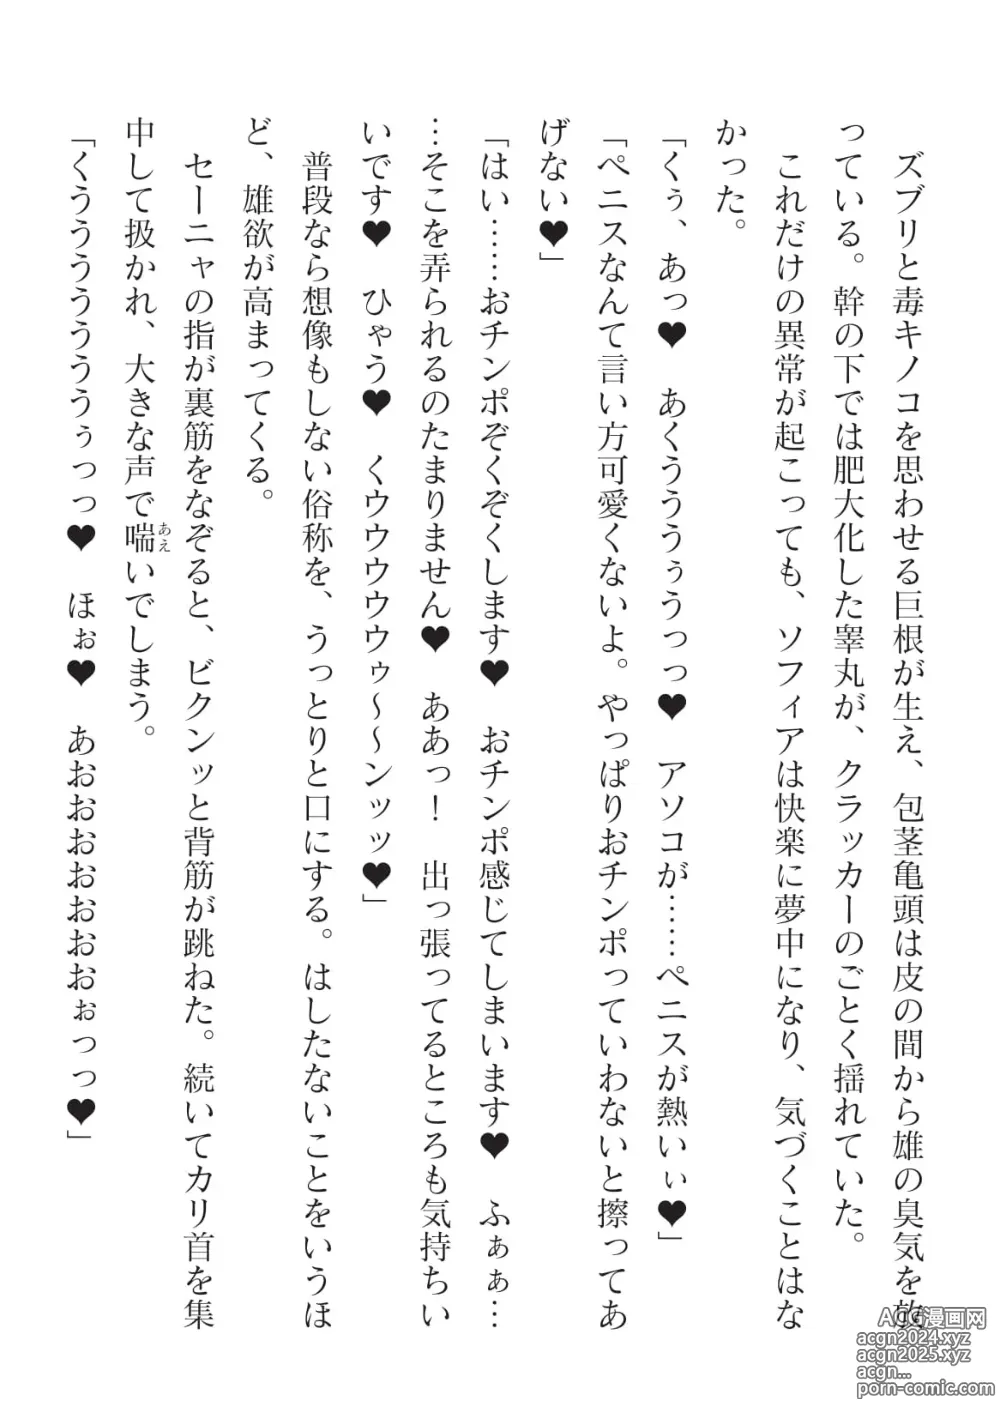 ズブリと毒キノコを思わせる巨根が生え、包茎亀頭は皮の間から雄の臭気を放
っている。幹の下では肥大化した睾丸が、クラッカーのごとく揺れていた。
これだけの異常が起こっても、ソフィアは快楽に夢中になり、気づくことはな
かった。
「くぅ、あっ♥　あくうううぅうっっ♥　アソコが……ペニスが熱いぃ♥」
「ペニスなんて言い方可愛くないよ。やっぱりおチンポっていわないと擦ってあ
げない♥」
「はい……おチンポぞくぞくします♥　おチンポ感じてしまいます♥　ふぁぁ…
…そこを弄られるのたまりません♥　ああっ！　出っ張ってるところも気持ちい
いです♥　ひゃう♥　くウウウウゥ〜〜ンッッ♥」
普段なら想像もしない俗称を、うっとりと口にする。はしたないことをいうほ
ど、雄欲が高まってくる。
セーニャの指が裏筋をなぞると、ビクンッと背筋が跳ねた。続いてカリ首を集
中して扱かれ、大きな声で喘いでしまう。
あえ
「くうううううううぅっっ♥　ほぉ♥　あおおおおおおおぉっっ♥」
ACG漫画网
acgn2024.xyz
acgn2025.xyz
acgn...
porn-comic.com